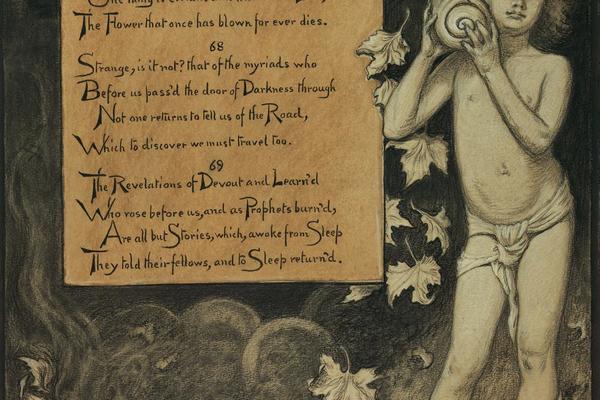 The Flower that once has blown for ever dies.
68
Strange, is it not? that of the myriads who
Before us pass'd the door of Darkness through
Not one returns to tell us of the Road,
Which to discover we must travel too.
69
The Revelations of Devout and Learn'd
Who rose before us, and as Prophets burn'd,
Are all but Stories, which, awoke from Sleep
They told their fellows, and to Sleep return'd.